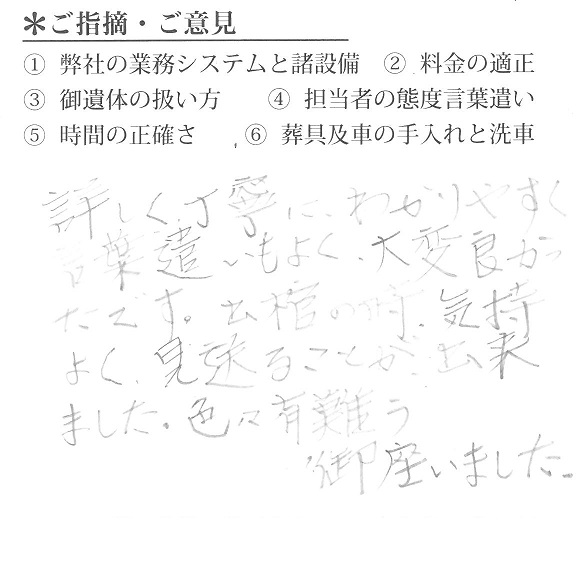 ＊ご指摘・ご意見
① 弊社の業務システムと諸設備　② 料金の適正
③ 御遺体の扱い方　④ 担当者の態度言葉遣い
⑤ 時間の正確さ　⑥ 葬具及車の手入れと洗車
詳しく、丁寧に、わかりやすく
言葉遣いもよく、大変良かっ
たです。出棺の時、気持
よく、見送ることが、出来
ました。色々有難う
御座いました。